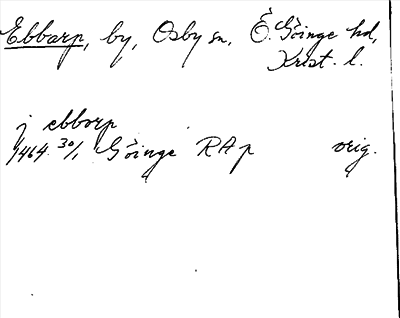 Ebbarp, by, Osby sn, Ö. Göinge hd,
Krist. l.
j ebborp
1464 30/1 Göinge RAp orig.